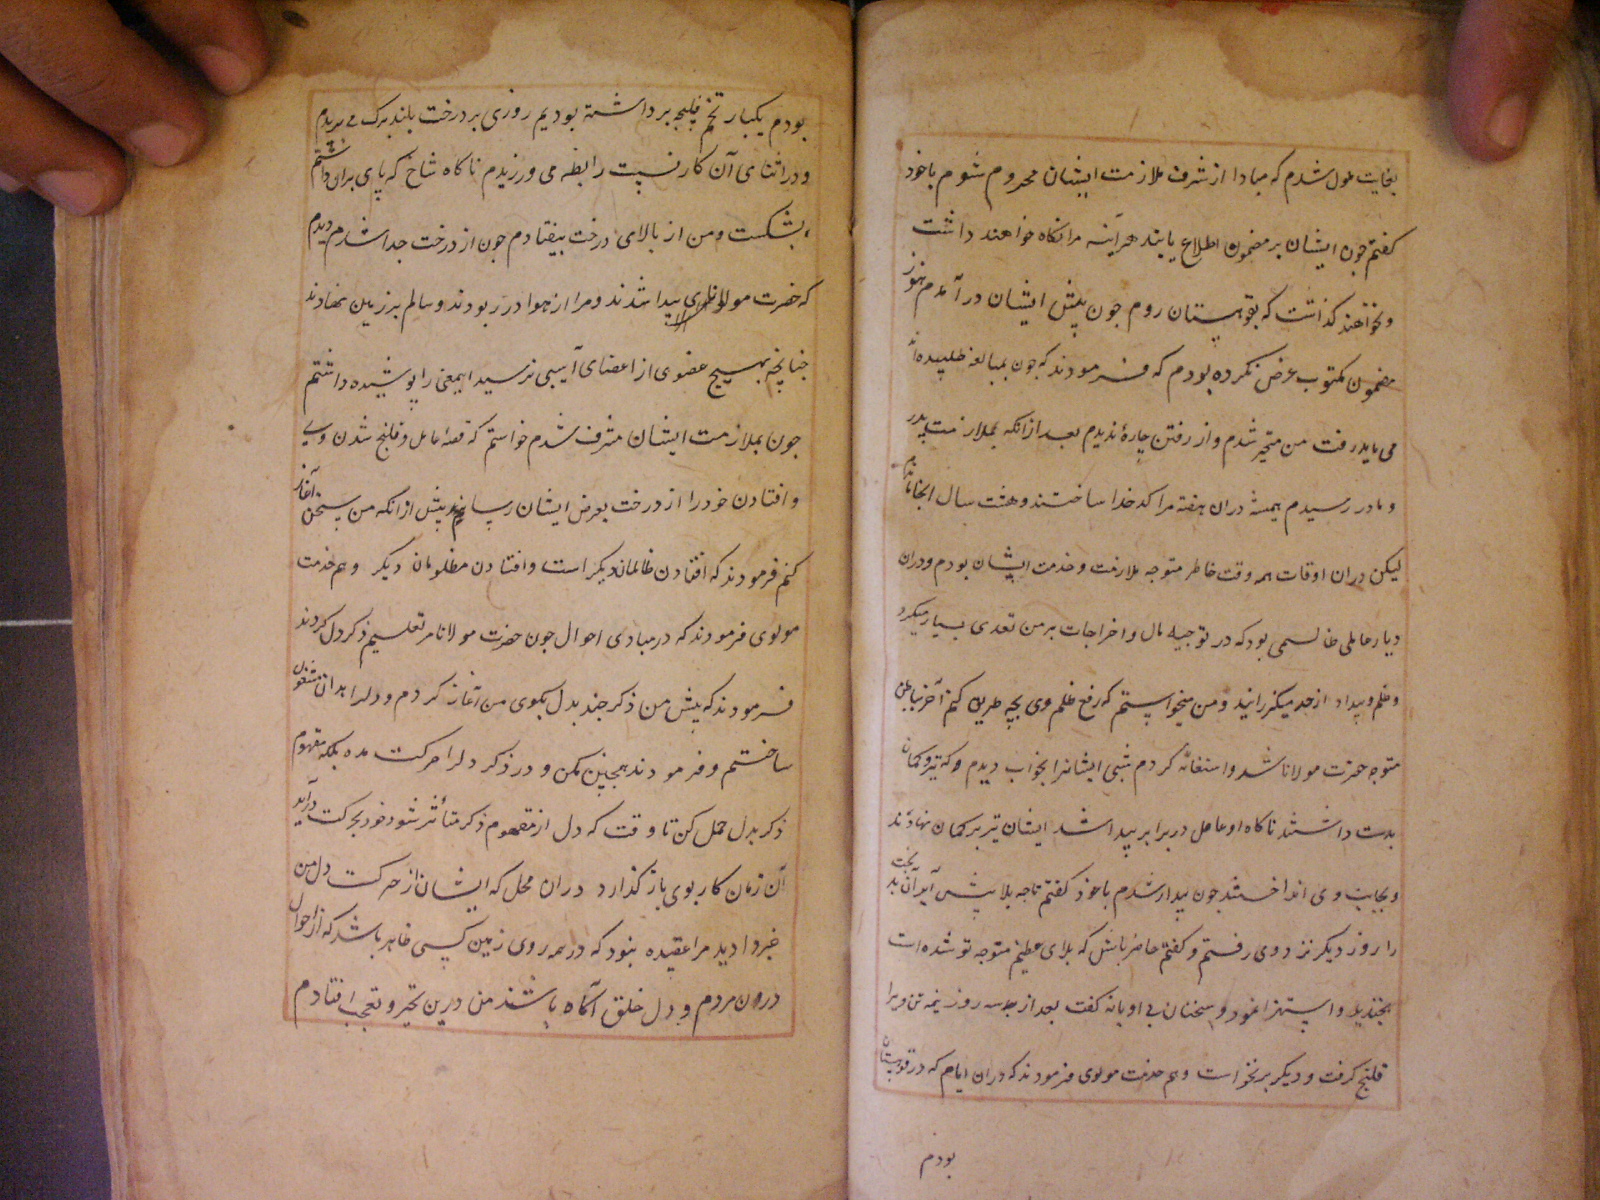 بغایت ملول شدم که مبادا از شرف ملازمت ایشان محروم شوم با خود
کفتم چون ایشان بر مضمون اطلاع یابند هر آینه مرا نکاه خواهند داشت
و نخواهند کذاشت که بقوهستان روم چون پیش ایشان در آمدم هنوز
مضمون مکتوب عرض نکرده بودم که فرمودند که چون بمبالغه طلبیده اند
می باید رفت من متحیر شدم و از رفتن چارۀ ندیدم بعد از انکه بملازمت پدر
و مادر رسیدم هم در ان هفته مرا کدخدا ساختند و هشت سال انجا ماندم
لیکن دران اوقات همه وقت خاطر متوجه ملازمت و خدمت ایشان بودم و دران
دیار عاملی ظالمی بود که در توجیه مال و اخراجات بر من تعدی بسیار میکرد
و ظلم و بیداد از حد میکذرانید و من میخواستم که رفع ظلم وی بچه طریق کنم آخر بباطن
متوجه حضرت مولانا شد و استغاثه کردم شبی ایشانرا بخواب دیدم که تیر و کمان
بدست داشتند ناکاه او عامل در برابر پیدا شد ایشان تیر بر کمان نهادند
و بجانب وی انداختند چون بیدار شدم با خود کفتم تا چه بلا پیش آید آن بد بخت
را روز دیکر نزد وی رفتم و کفتم حاضر باش که بلای عظیم متوجه تو شده است
بخندید و استهزا نمود و سخنان بی ادبانه کفت بعد از سه روز نیمه تن ویرا
قلنج کرفت و دیکر بر نخواست و هم خدمت مولوی فرمودند که دران ایام که در قوهستان
بودم
بودم یکبار تخم پیله برداشته بودیم روزی بر درخت بلند برک می بریدم
و در اثنای آن کار نسبت رابطه می ورزیدم ناکاه شاخ که پای بران داشتم
بشکست و من از بالای درخت بیفتادم چون از درخت جدا شدم دیدم
که حضرت مولانا پیدا شدند و مرا از هوا در ربودند و سالم بر زمین نهادند
چنانچه بهیچ عضوی از اعضای آسیبی نرسید اینمعنی را پوشیده داشتم
چون بملازمت ایشان مشرف شدم خواستم که قصۀ عامل و قلنج شدن وی
و افتادن خود را از درخت بعرض ایشان رسانم پیش از انکه من سخن آغاز
کنم فرمودند که افتادن ظالمان دیکر است و افتادن مظلومان دیکر و هم خدمت
مولوی فرمودند که در مبادی احوال چون حضرت مولانا مرا تعلیم ذکر دل کردند
فرمودند که پیش من ذکر چند بدل بکوی من آغاز کردم و دلرا بدان مشغول
ساختم و فرمودند همچنین مکن و در ذکر دلرا حرکت مده بلکه مفهوم
ذکر بدل حمل کن تا وقت که دل از مفهوم ذکر متأثر شود خود بحرکت درآید
آن زمان کار بوی باز کذارد دران محل که ایشان از حرکت دل من
خبر دادید مرا عقیده نبود که در همه روی زمین کسی ظاهر باشد که از احوال
درون مردم و دل خلق آکاه باشند من درین تحیر و تعجب افتادم